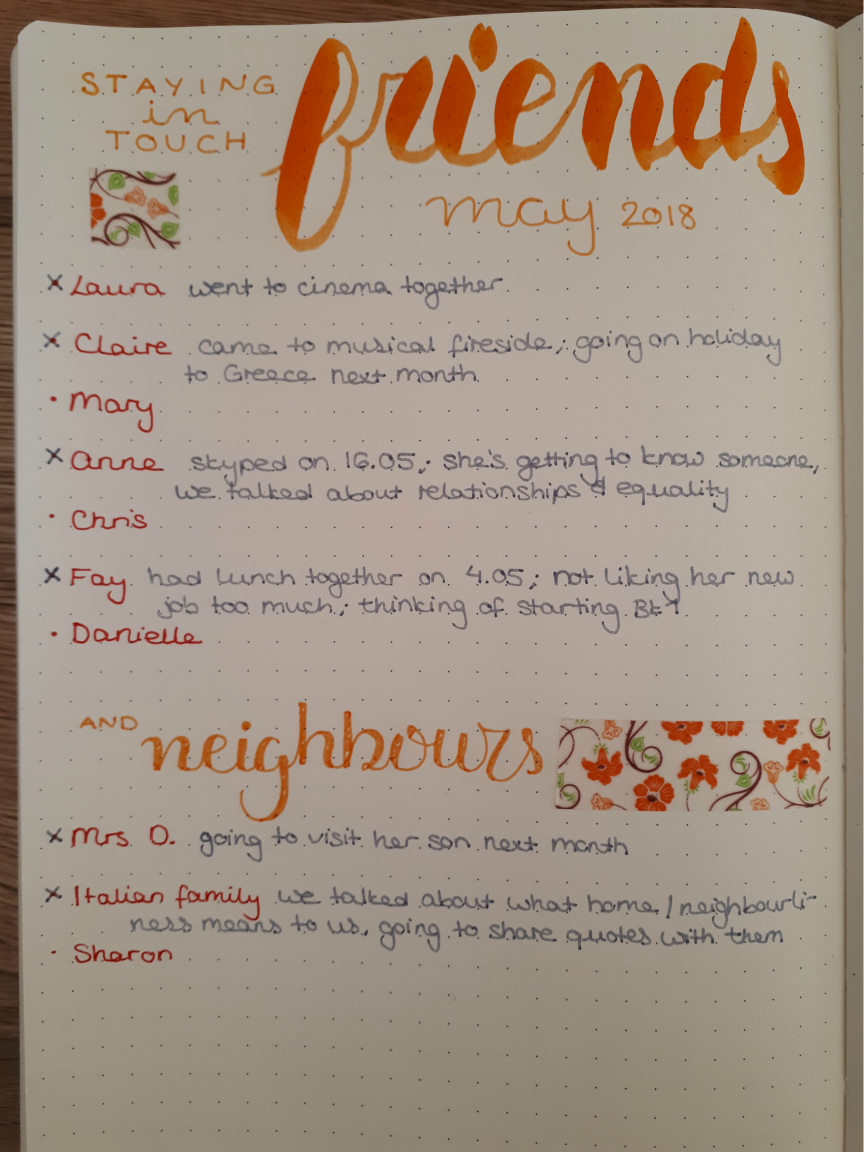 STAYING
in
TOUCH
friends
may 2018
× Laura went to cinema together.
× Claire came to musical fireside; going on holiday
to Greece next month
· Mary
× Anne skyped on 16.05; she's getting to know someone,
we talked about relationships & equality
· Chris
× Fay had lunch together on 4.05; not liking her new
job too much; thinking of starting BK1
· Danielle
AND neighbours
× Mrs O. going to visit her son next month
× Italian family we talked about what home/neighbourli-
ness means to us, going to share quotes with them
· Sharon